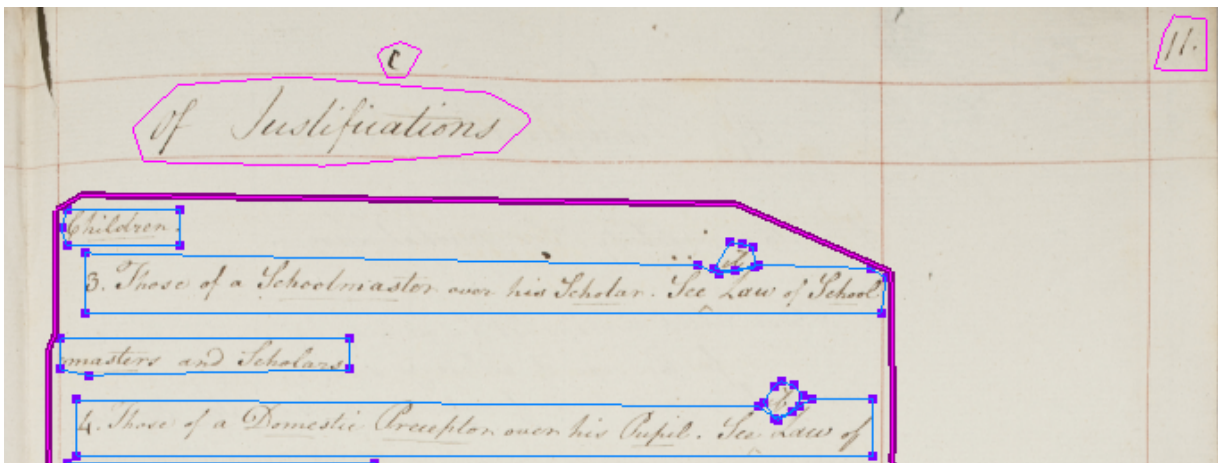 C
11.
Of Justifications
Children.
3. Those of a Schoolmaster over his Scholar. See Law of School
masters and Scholars
4. Those of a Domestic Preceptor over his Pupil. See Law of